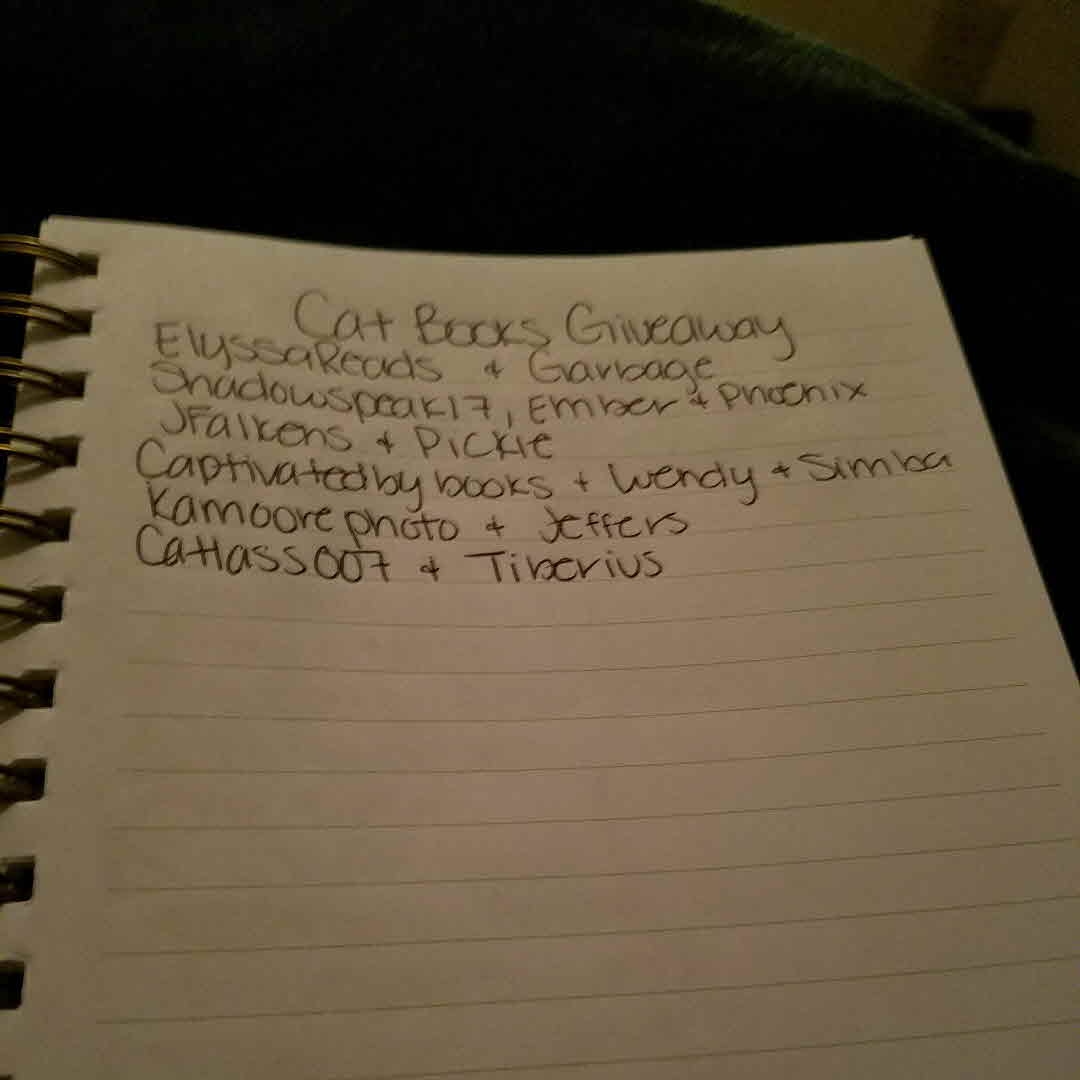 Cat Books Giveaway
ElyssaReads & Garbage
Shadowspeak17, Ember & Phoenix
JFalkens & Pickle
Captivatedbybooks + Wendy + Simba
Kamoorephoto & Jeffers
Catlass007 & Tiberius